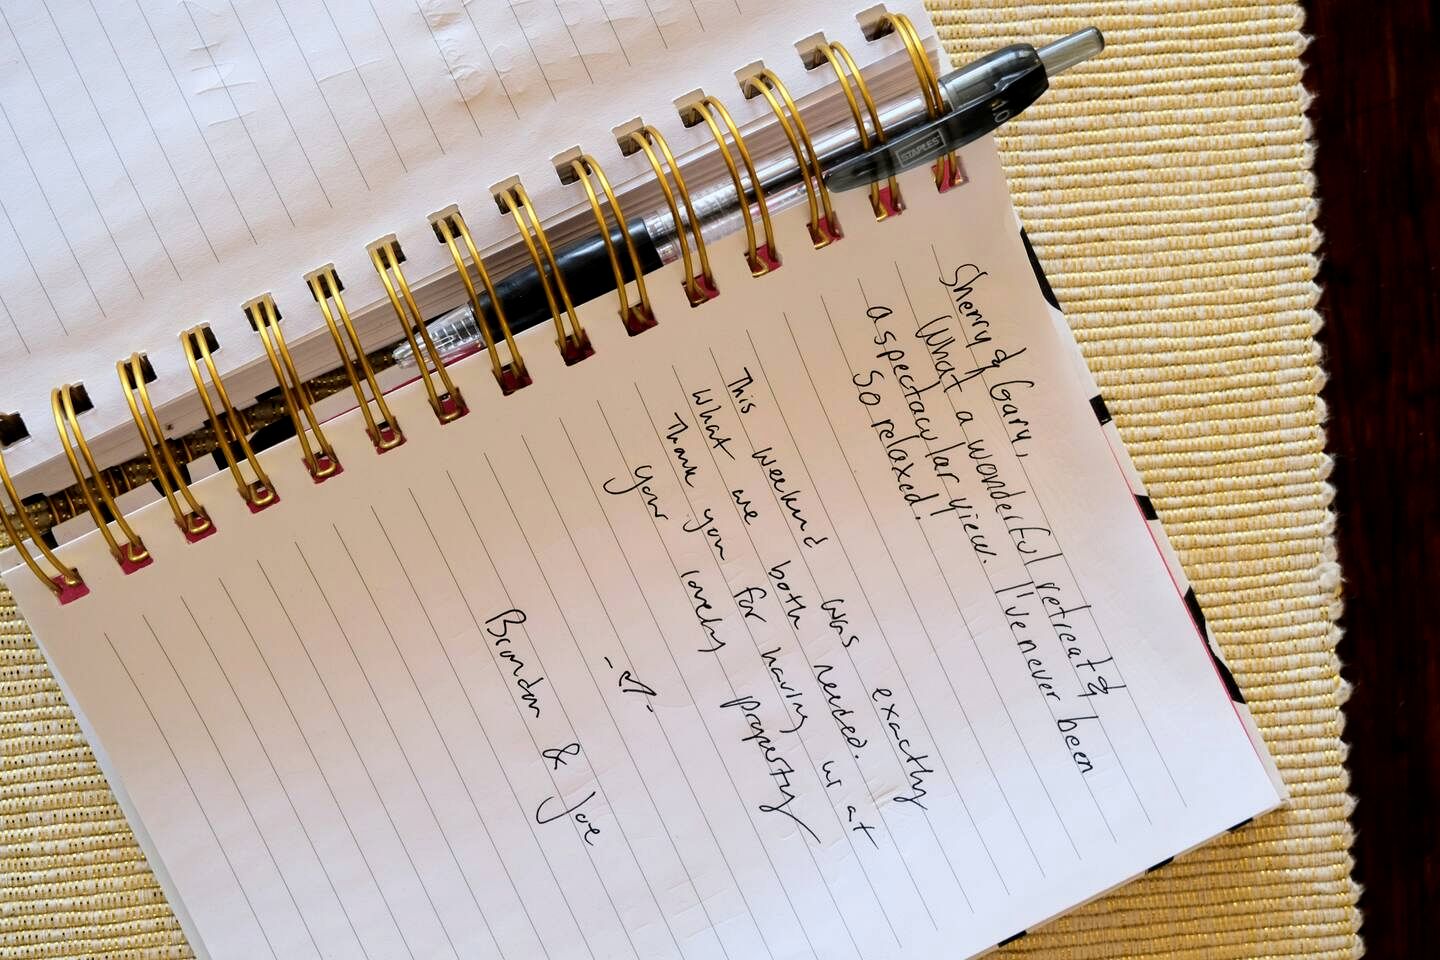 Sherry & Gary,
What a wonderful retreat &
a spectacular view. I've never been
so relaxed.
This weekend was exactly
what we both needed.
Thank you for having us at
your lovely property
-♡-
Brandon & Joe
STAPLES
1.0